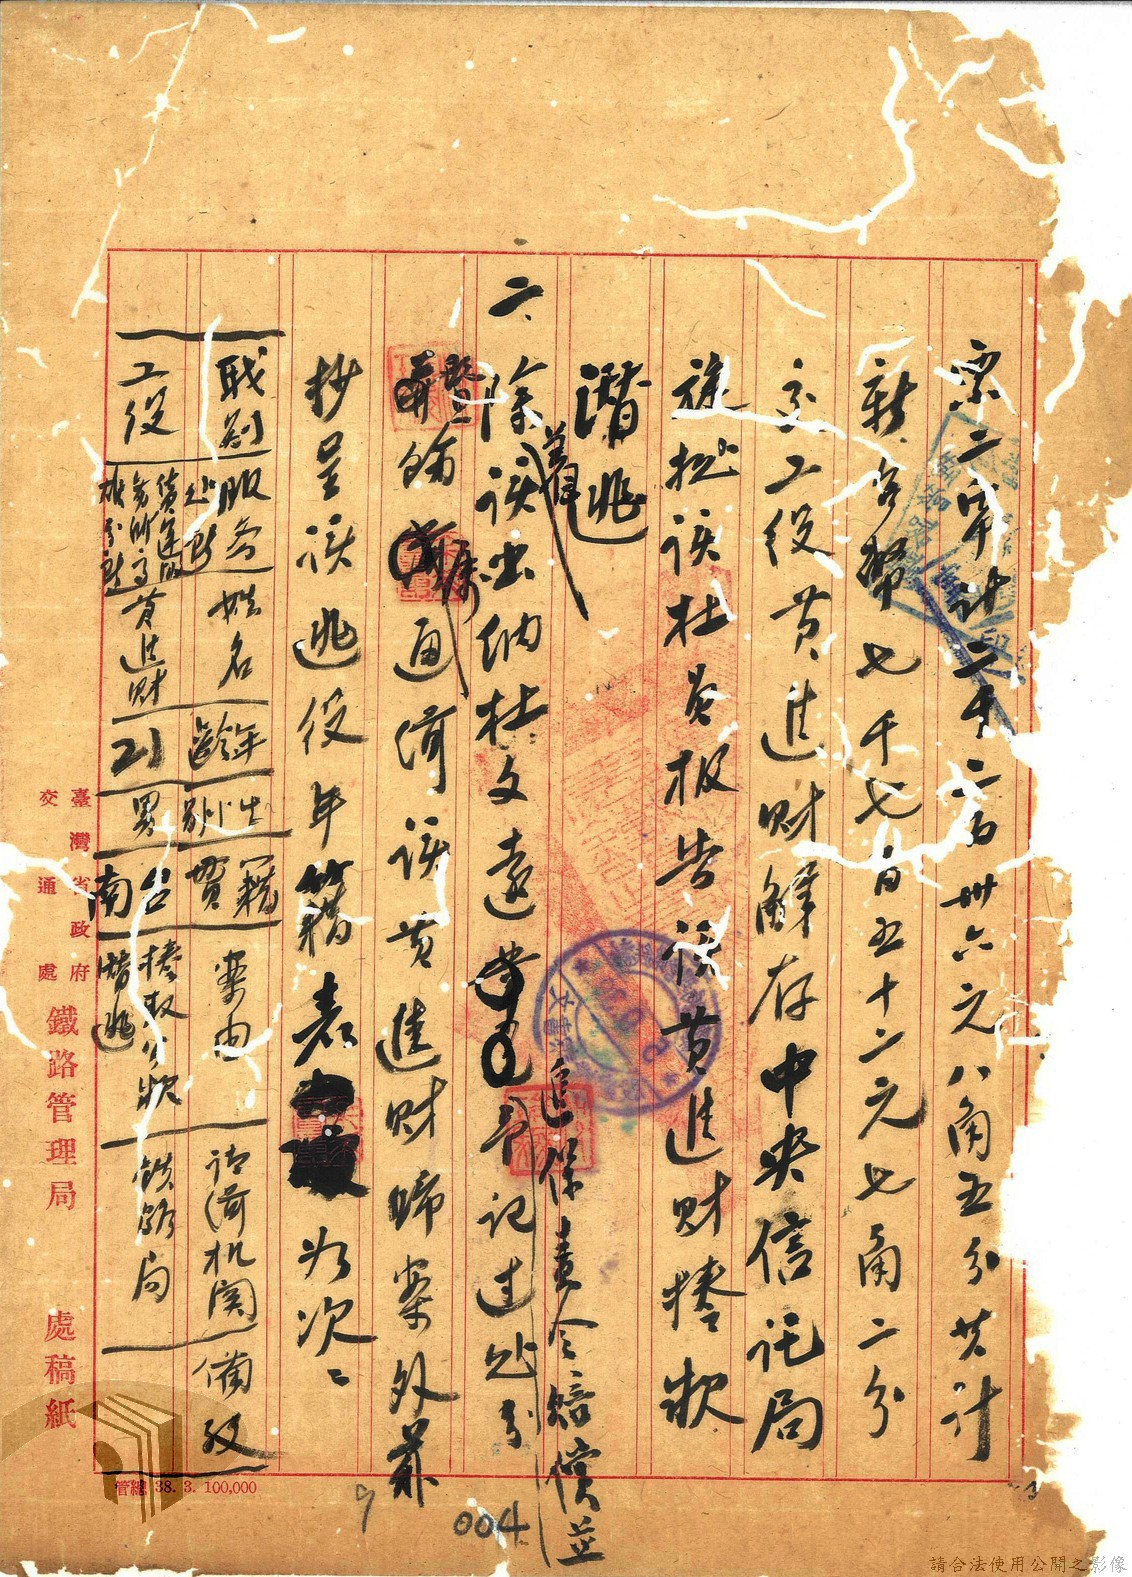 票二宗計二千二百卅六元八角五分共計
新台幣七千七百五十二元七角二分
交工役黃進財解存中央信託局
旋據該杜員報告該黃進財捲款
潛逃
二、除該出納杜文遠予記過處分
着追保責令賠償並
飭通緝該黃進財歸案外茲
抄呈該逃役年籍表如次：
職別 服務處所 姓名 年齡 性別 籍貫 案由 請緝機關 備考
工役 黃進財 21 男 台南 捲取公款潛逃 鐵路局
臺灣省政府
交通處
鐵路管理局
處稿紙
總管 38. 3. 100,000
9
004
請合法使用公開之影像